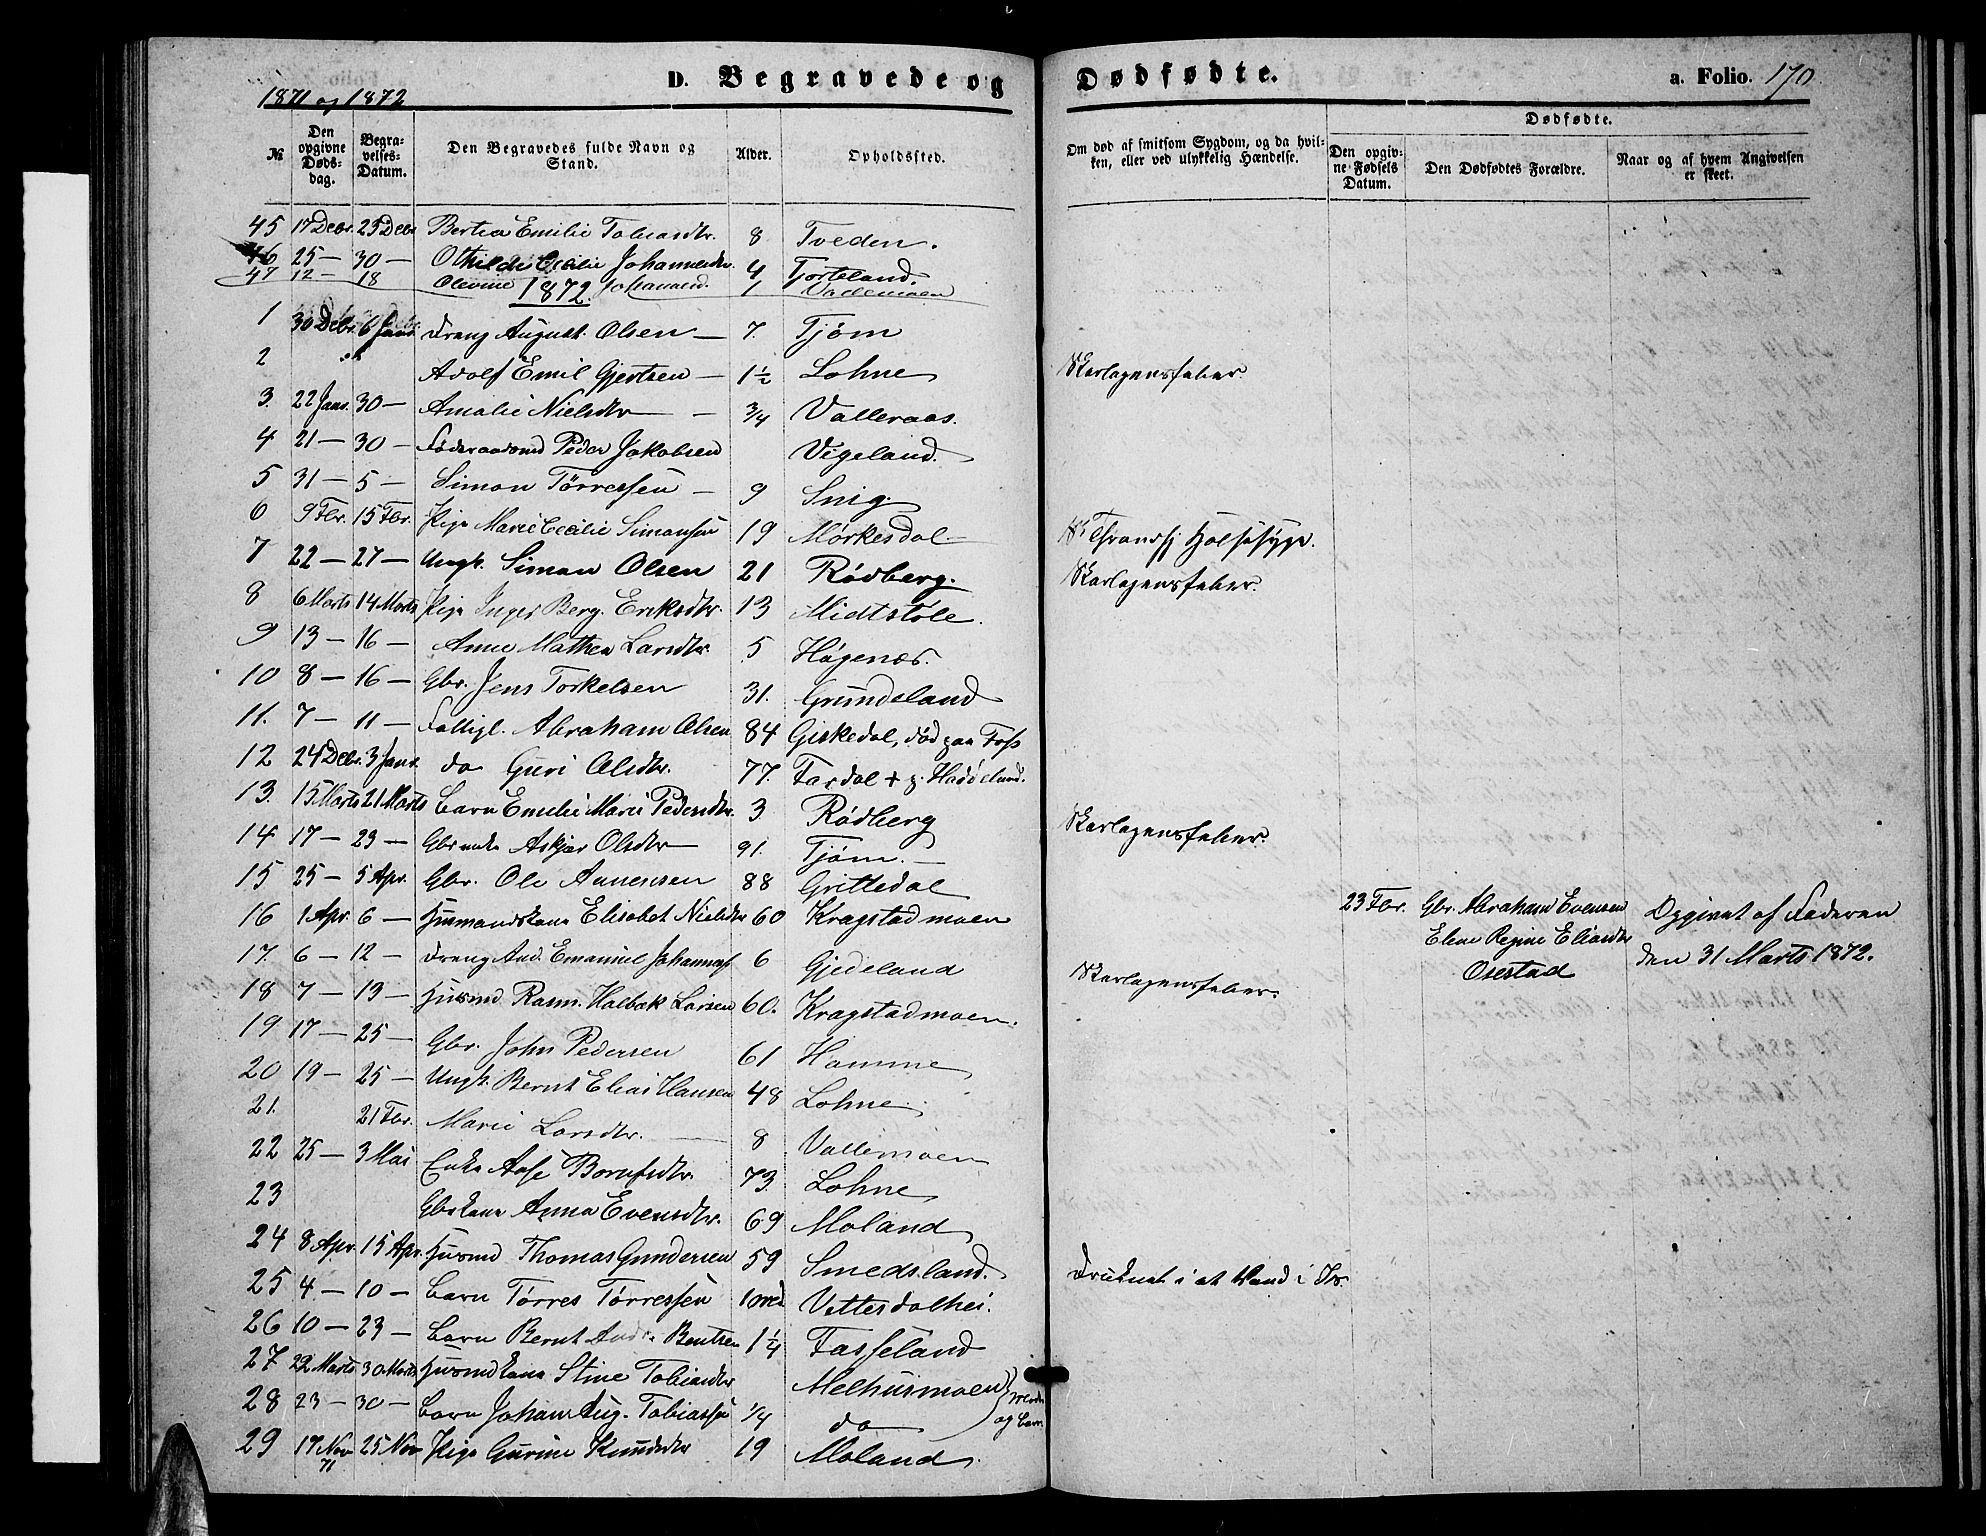 D. Begravede og Dødfødte. a. Folio. 170
1871 og 1872
Dødfødte.
№ Den opgivne Døds-dag. Begra-velses-Datum. Den Begravedes fulde Navn og Stand. Alder. Opholdssted. Om død af smitsom Sygdom, og da hvil-ken, eller ved ulykkelig Hændelse. Den opgiv-ne Fødsels Datum. Den Dødfødtes Forældre. Naar og af hvem Angivelsen er skeet.
45 17 Debr. 25 Debr Bertea Emilie Tobiasdtr. 8 Tveden.
46 25 — 30 — Othilde Cecilie Johannesdtr. 4 Fjorteland.
47 12 — 18 Olevine Johannesd. 1 Vademoen
1872.
1 30 Debr. 6 Janr. Dreng August Olsen — 7. Tjøm
2 Adolf Emil Gjertsen — 1½ Lohne Skarlagensfeber.
3. 22 Janr. 30 — Amalie Nielsdtr — ¾ Valleraas.
4 21 — 30 — Føderaadsmd Peder Jakobsen Vigeland.
5 31 — 5 — Simon Tørressen — 9 Snig.
6 9 Fbr. 15 Fbr. Pige Marie Cecilie Simonsen 19 Mørkesdal
7 22 — 27 — Ungk. Simon Olsen 21 Rødberg. Skarlagensfeber.
8 6 Marts 14 Marts Pige Inger Berg. Eriksdtr. 13 Midtstøle.
9 13 — 16 — Anne Mathea Larsdtr. 5 Høgenæs.
10 8 — 16 — Gbr. Jens Torkelsen 31. Grundeland
11. 7 — 11 — Fattigl. Abraham Olsen 84 Giskedal, død paa Foss
12 24 Debr. 3 Janr. do Guri Olsdtr. 77. Fardal + p.
13. 15 Marts 21 Marts Barn Emilie Marie Pedersdtr. 3 Rødberg Skarlagensfeber.
14 17 — 23 — Gbrenke Askjær Olsdtr — 91. Tjøm. —
15 25 — 5 Apr. Gbr. Ole Aanensen 88 Grittedal
16 1 Apr. 6 — Husmandskone Elisabet Nielsdtr 60 Kragstadmoen
23 Fbr. Gbr. Abraham Evensen Opgivet af Faderen
Elene Regine Eliasdtr den 31 Marts 1872.
Osestad
17. 6 — 12 — Dreng And. Emanuel Johanness 6 Gjedeland Skarlagensfeber.
18 7 — 13 — Husmd Rasm. Holbæk Larsen 60. Kragstadmoen.
19 17 — 25 — Gbr. John Pedersen 61 Homme
20 19 — 25 — Ungk. Bernt Elias Hansen 48 Lohne.
21. 21 Fbr. Marie Larsdtr. — 8 Vallemoen
22 25 — 3 Mai Enke Aase Bornfsdtr. 73. Lohne
23 Gbrkone Anna Evensdtr. 69 Moland
24 8 Apr. 15 Apr. Husmd Thomas Gundersen 59 Smedsland. Druknet i et Vand i
25 4 — 10 — Barn Tørres Tørressen Vettesdalhei.
26 10 — 23 — Barn Bernt Andr. Bentsen 1¼ Fasseland
27 22 Marts 30 Marts Husmdkone Stine Tobiasdtr Melhusmoen } Moder
28 23 — 30 — Barn Johan Aug. Tobiassen ¼ do og Barn
29 17 Nov 71 25 Nov Pige Gurine Knudsdtr 19 Moland.